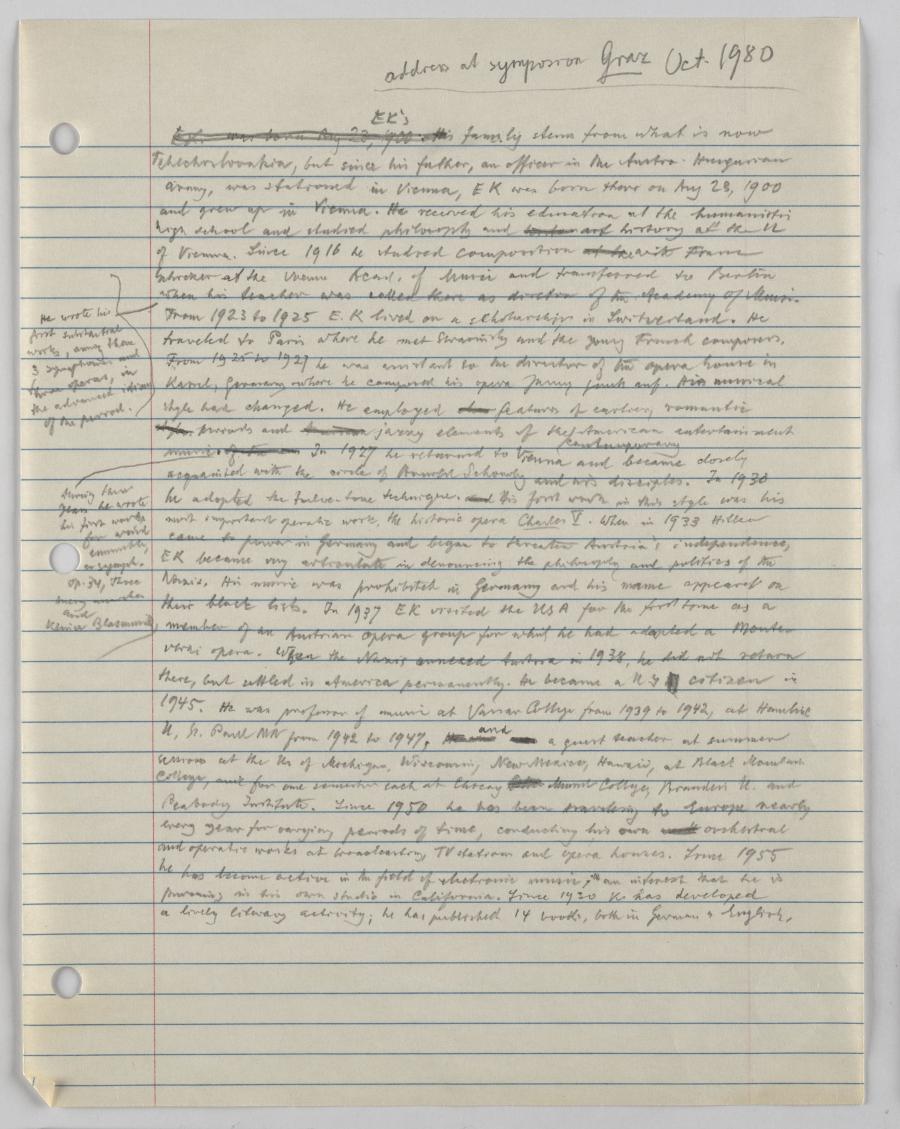 address at symposion Graz Oct. 1980
EK's
EK was born Aug 23, 1900. His family stems from what is now
Tchechoslovakia, but since his father, an officer in the Austro-Hungarian
army, was stationed in Vienna, EK was born there on Aug 23, 1900
and grew up in Vienna. He received his education at the humanistic
high school and studied philosophy and art history at the U
of Vienna. Since 1916 he studied composition with Franz
Schreker at the Vienna Acad. of Music and transferred to Berlin
when his teacher was called there as director of the Academy of Music.
He wrote his
first substantial
works, among them
3 symphonies and
three operas, in
the advanced idiom
of the period.
From 1923 to 1925 E.K lived on a scholarship in Switzerland. He
traveled to Paris where he met Stravinsky and the young French composers.
From 1925 to 1927 he was assistant to the director of the opera house in
Kassel, Germany where he composed his opera Jonny spielt auf. His musical
style had changed. He employed features of earlier, romantic
periods and jazzy elements of the American entertainment
music of the In 1927 he returned to Vienna and became closely
contemporary
acquainted with the circle of Arnold Schoenberg and his disciples. In 1930
he adopted the twelve-tone technique. His first work in this style was his
most important operatic work, the historic opera Charles V. When in 1933 Hitler
came to power in Germany and began to threaten Austria's independence,
EK became very articulate in denouncing the philosophy and politics of the
Nazis. His music was prohibited in Germany and his name appeared on
their black lists. In 1937 EK visited the USA for the first time as a
During these
years he wrote
his first works
for wind
ensemble,
op. 34, three
merry marches
and
Kleine Blasmusik
member of an Austrian opera group for which he had adapted a Monte-
verdi opera. When the Nazis annexed Austria in 1938, he did not return
there, but settled in America permanently. He became a US citizen in
1945. He was professor of music at Vassar College from 1939 to 1942, at Hamline
U, St. Paul MN from 1942 to 1947, and a guest teacher at summer
sessions at the Us of Michigan, Wisconsin, New Mexico, Hawaii, at Black Mountain
College, and for one semester each at Chicago Music College, Brandeis U. and
Peabody Institute. Since 1950 he has been traveling to Europe nearly
every year for varying periods of time, conducting his own orchestral
and operatic works at broadcasting, TV stations and opera houses. Since 1955
he has become active in the field of electronic music, an interest that he is
pursuing in his own studio in California. Since 1920 K has developed
a lively literary activity; he has published 14 books, both in German & English,